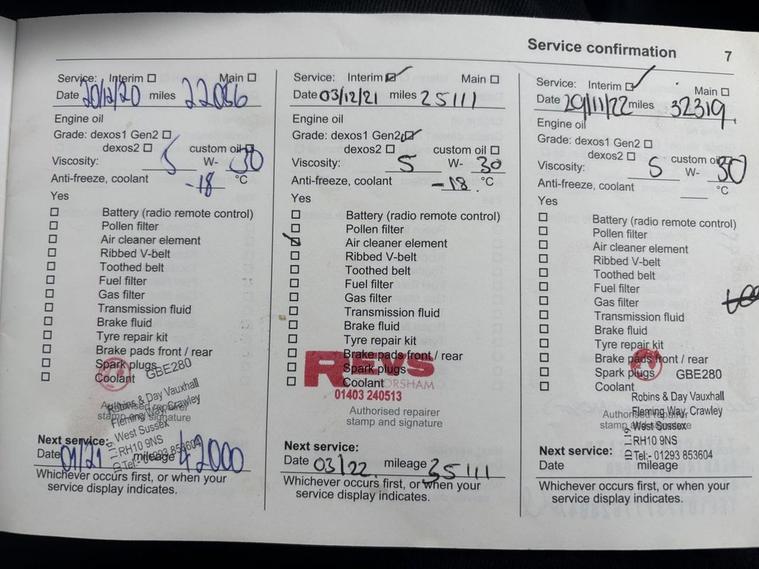 Service confirmation 7
Service: Interim Main
Date 20/12/20 miles 22086
Engine oil
Grade: dexos1 Gen2
dexos2 custom oil
Viscosity: 5 W- 30
Anti-freeze, coolant -18 °C
Yes
Battery (radio remote control)
Pollen filter
Air cleaner element
Ribbed V-belt
Toothed belt
Fuel filter
Gas filter
Transmission fluid
Brake fluid
Tyre repair kit
Brake pads front / rear
Spark plugs
Coolant
GBE280
Robins & Day Vauxhall
Fleming Way, Crawley
West Sussex
RH10 9NS
Tel:- 01293 853604
Authorised repairer
stamp and signature
Next service:
Date 01/21 mileage 42000
Whichever occurs first, or when your
service display indicates.
Service: Interim Main
Date 03/12/21 miles 25111
Engine oil
Grade: dexos1 Gen2
dexos2 custom oil
Viscosity: 5 W- 30
Anti-freeze, coolant -18 °C
Yes
Battery (radio remote control)
Pollen filter
Air cleaner element
Ribbed V-belt
Toothed belt
Fuel filter
Gas filter
Transmission fluid
Brake fluid
Tyre repair kit
Brake pads front / rear
Spark plugs
Coolant
REVS
ORSHAM
01403 240513
Authorised repairer
stamp and signature
Next service:
Date 03/22 mileage 35111
Whichever occurs first, or when your
service display indicates.
Service: Interim Main
Date 29/11/22 miles 32319
Engine oil
Grade: dexos1 Gen2
dexos2 custom oil
Viscosity: 5 W- 30
Anti-freeze, coolant °C
Yes
Battery (radio remote control)
Pollen filter
Air cleaner element
Ribbed V-belt
Toothed belt
Fuel filter
Gas filter
Transmission fluid
Brake fluid
Tyre repair kit
Brake pads front / rear
Spark plugs
Coolant
GBE280
Robins & Day Vauxhall
Fleming Way, Crawley
West Sussex
RH10 9NS
Tel:- 01293 853604
Authorised repairer
stamp and signature
Next service:
Date mileage
Whichever occurs first, or when your
service display indicates.